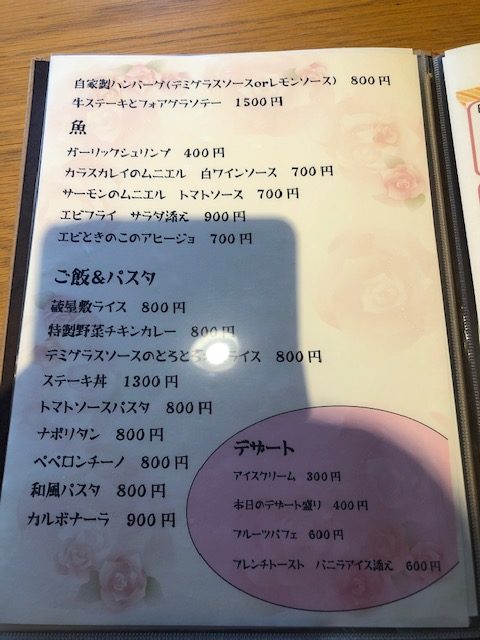 自家製ハンバーグ(デミグラスソースorレモンソース) 800円
牛ステーキとフォアグラソテー 1500円
魚
ガーリックシュリンプ 400円
カラスカレイのムニエル 白ワインソース 700円
サーモンのムニエル トマトソース 700円
エビフライ サラダ添え 900円
エビときのこのアヒージョ 700円
ご飯&パスタ
蔵屋敷ライス 800円
特製野菜チキンカレー 800円
デミグラスソースのとろとろ ライス 800円
ステーキ丼 1300円
トマトソースパスタ 800円
ナポリタン 800円
ペペロンチーノ 800円
和風パスタ 800円
カルボナーラ 900円
デザート
アイスクリーム 300円
本日のデザート盛り 400円
フルーツパフェ 600円
フレンチトースト バニラアイス添え 600円